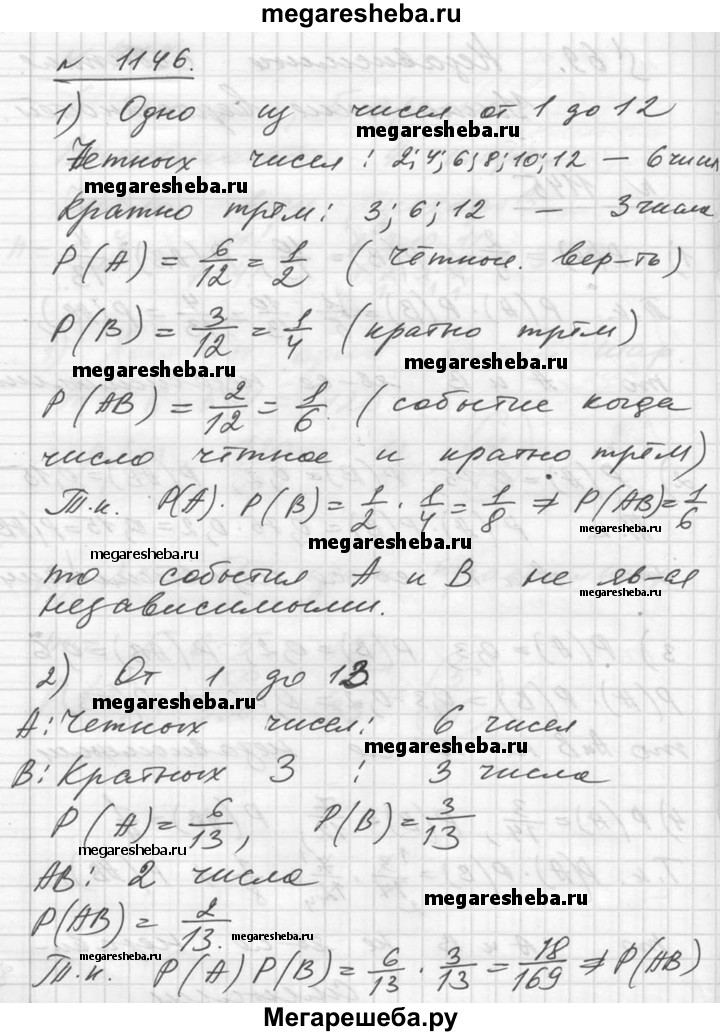 megaresheba.ru
№ 1146.
1) Одно из чисел от 1 до 12
megaresheba.ru
Четных чисел: 2;4;6;8;10;12 — 6 чисел
megaresheba.ru
Кратно трём: 3; 6; 12 — 3 числа
P(A) = 6/12 = 1/2 (чётное. вер-ть)
P(B) = 3/12 = 1/4 (кратно трём)
megaresheba.ru
megaresheba.ru
P(AB) = 2/12 = 1/6. (событие когда
число чётное и кратно трём)
Т.к. P(A) · P(B) = 1/2 · 1/4 = 1/8 ≠ P(AB) = 1/6
megaresheba.ru
megaresheba.ru
megaresheba.ru
то события A и B не яв-ся
megaresheba.ru
независимыми.
2) От 1 до 13
megaresheba.ru
A: Четных чисел: 6 чисел
megaresheba.ru
B: Кратных 3 : 3 числа
P(A) = 6/13, P(B) = 3/13
megaresheba.ru
AB: 2 числа
megaresheba.ru
P(AB) = 2/13.
megaresheba.ru
megaresheba.ru
Т.к. P(A) P(B) = 6/13 · 3/13 = 18/169 ≠ P(AB)
Мегарешеба.ру